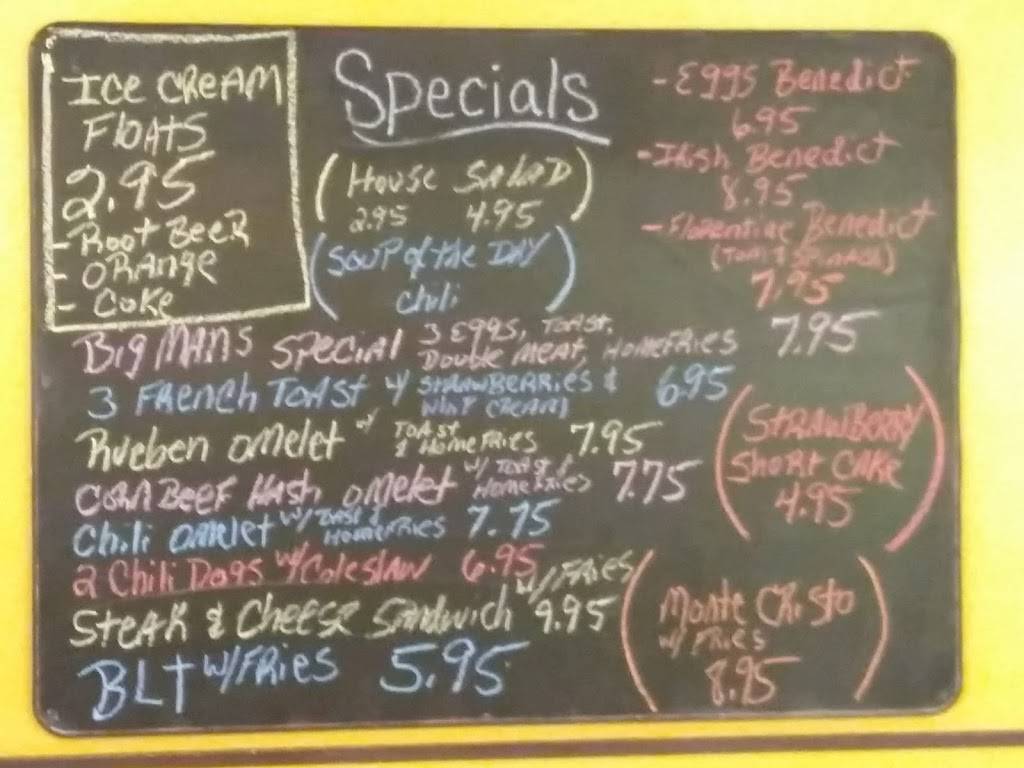 Ice Cream
Floats
2.95
- Root Beer
- Orange
- Coke
Specials
(House Salad)
2.95 4.95
(Soup of the Day
Chili)
- Eggs Benedict
6.95
- Irish Benedict
8.95
- Florentine Benedict
(Tom & Spinach)
7.95
Big Mans Special 3 Eggs, Toast, Double Meat, Homefries 7.95
3 French Toast w/ Strawberries & Whip Cream 6.95
Rueben Omelet w/ Toast & Homefries 7.95
Corn Beef Hash Omelet w/ Toast & Homefries 7.75
Chili Omelet w/ Toast & Homefries 7.75
2 Chili Dogs w/ Coleslaw 6.95
Steak & Cheese Sandwich w/ Fries 9.95
BLT w/ Fries 5.95
(Strawberry
Short Cake
4.95)
(Monte Cristo
w/ Fries
8.95)